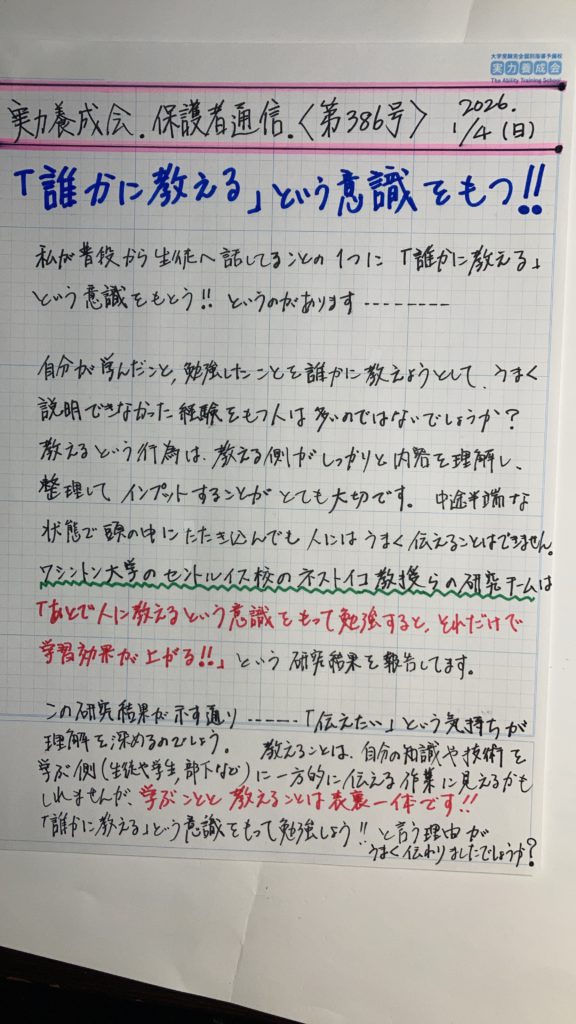 大学受験完全個別指導予備校
実力養成会
The Ability Training School
実力養成会.保護者通信.〈第386号〉 2026.
1/4(日)
「誰かに教える」という意識をもつ!!
私が普段から生徒へ話してることの1つに 「誰かに教える」
という意識をもとう!! というのがあります--------
自分が学んだこと,勉強したことを誰かに教えようとして、うまく
説明できなかった経験をもつ人は多いのではないでしょうか?
教えるという行為は、教える側がしっかりと内容を理解し、
整理してインプットすることがとても大切です。 中途半端な
状態で頭の中にたたき込んでも人にはうまく伝えることはできません。
ワシントン大学のセントルイス校のネストイコ教授らの研究チームは
「あとで人に教えるという意識をもって勉強すると、それだけで
学習効果が上がる!!」という研究結果を報告してます。
この研究結果が示す通り------「伝えたい」という気持ちが
理解を深めるのでしょう。 教えることは、自分の知識や技術を
学ぶ側(生徒や学生,部下など)に一方的に伝える作業に見えるかも
しれませんが、学ぶことと教えることは表裏一体です!!
「誰かに教える」という意識をもって勉強しよう!! と言う理由が
うまく伝わりましたでしょうか?